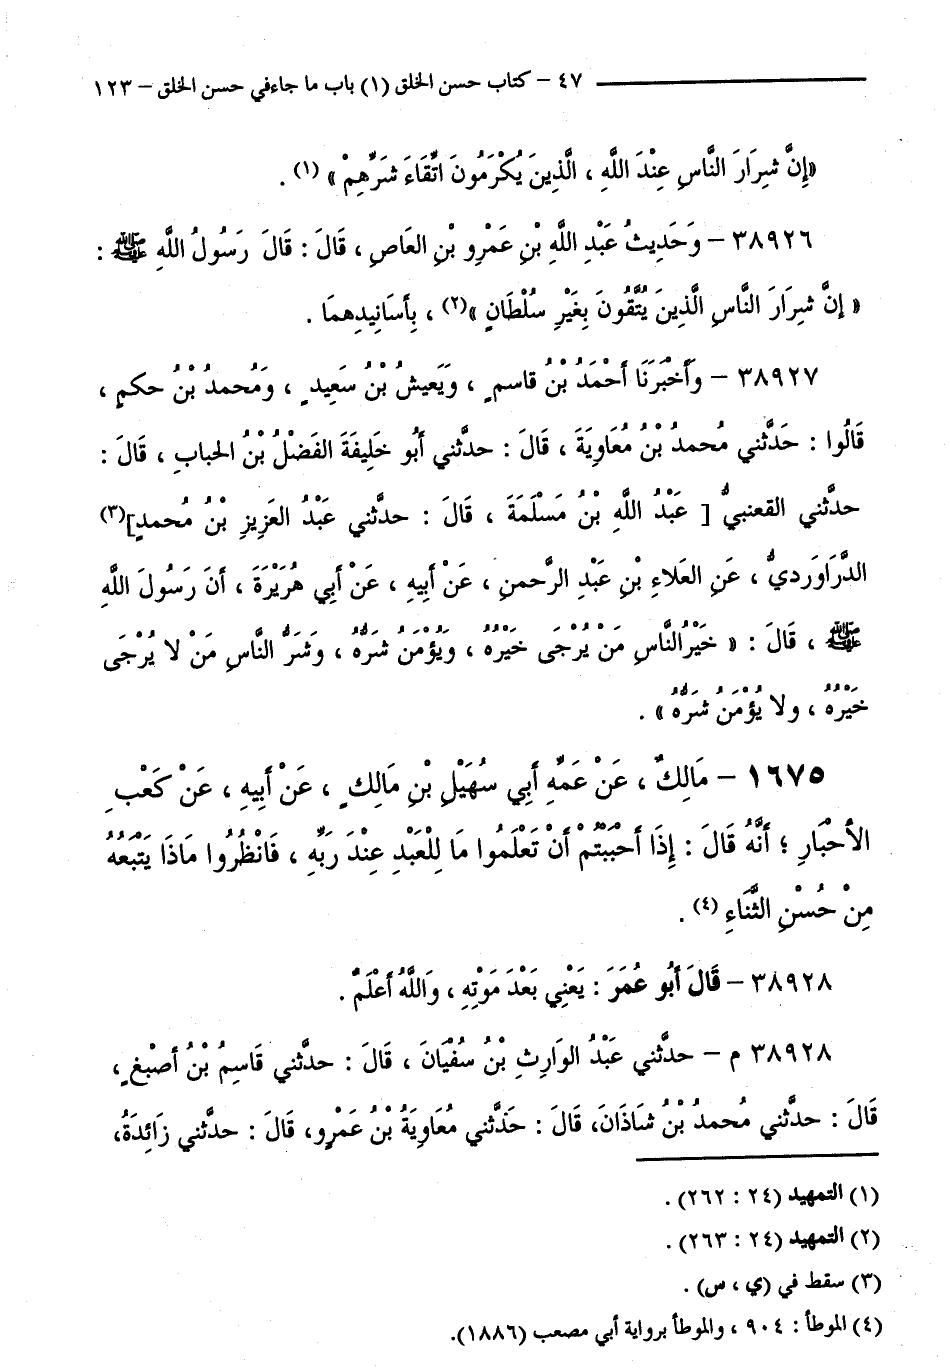 ٤٧ – كتاب حسن الخلق (١) باب ما جاء في حسن الخلق – ١٢٣
«إِنَّ شِرَارَ النَّاسِ عِنْدَ اللَّهِ ، الَّذِينَ يُكْرَمُونَ اتِّقَاءَ شَرِّهِمْ » (١) .
٣٨٩٢٦ – وَحَدِيثُ عَبْدِ اللَّهِ بْنِ عَمْرِو بْنِ العَاصِ ، قَالَ : قَالَ رَسُولُ اللَّهِ ﷺ :
« إنَّ شِرَارَ النَّاسِ الَّذِينَ يُتَّقُونَ بِغَيْرِ سُلْطَانٍ »(٢) ، بِأسَانِيدِهمَا .
٣٨٩٢٧ – وَأَخْبَرَنَا أَحْمَدُ بْنُ قاسمٍ ، وَيَعيشُ بْنُ سَعِيدٍ ، وَمُحمدُ بْنُ حكمٍ ،
قَالُوا : حَدَّثني مُحمدُ بْنُ مُعَاوِيَةَ ، قَالَ : حدَّثني أَبُو خَلِيفَةَ الفَضْلُ بْنُ الحبابِ ، قَالَ :
حدَّثني القعنبيُّ [ عَبْدُ اللَّهِ بْنُ مَسْلَمَةَ ، قَالَ : حدَّثني عَبْدُ العَزِيزِ بْنُ مُحمدٍ](٣)
الدَّرَاوَرديُّ ، عَنِ العَلاءِ بْنِ عَبْدِ الرَّحمنِ ، عَنْ أَبِيهِ ، عَنْ أَبِي هُرَيْرَةَ ، أنَ رَسُولَ اللَّهِ
ﷺ ، قَالَ : « خَيْرُ النَّاسِ مَنْ يُرْجَى خَيْرُهُ ، وَيُؤْمَنُ شَرُّهُ ، وَشَرُّ النَّاسِ مَنْ لا يُرْجَى
خَيْرُهُ ، ولا يُؤْمَنُ شَرُّهُ » .
١٦٧٥ – مَالِكٌ ، عَنْ عَمِّهِ أَبِي سُهَيْلِ بْنِ مَالِكٍ ، عَنْ أَبِيهِ ، عَنْ كَعْبِ
الأَحْبَارِ ؛ أَنَّهُ قَالَ : إِذَا أَحْبَبْتُمْ أَنْ تَعْلَمُوا مَا لِلْعَبْدِ عِنْدَ رَبِّهِ ، فَانْظُرُوا مَاذَا يَتْبَعُهُ
مِنْ حُسْنِ الثَّنَاءِ (٤) .
٣٨٩٢٨ – قَالَ أَبُو عُمَرَ : يَعْنِي بَعْدَ مَوْتِهِ ، وَاللَّهُ أَعْلَمُ .
٣٨٩٢٨ م – حدَّثني عَبْدُ الوَارِثِ بْنُ سُفْيَانَ ، قَالَ : حدَّثني قَاسِمُ بْنُ أصْبغٍ ،
قَالَ : حدَّثني مُحمدُ بْنُ شَاذَانَ، قَالَ : حَدَّثني مُعَاوِيَةُ بْنُ عَمْرٍو، قَالَ : حدَّثني زَائِدَةُ،
(١) التمهيد (٢٤ : ٢٦٢) .
(٢) التمهيد (٢٤ : ٢٦٣) .
(٣) سقط في (ي ، س) .
(٤) الموطأ : ٩٠٤ ، والموطأ برواية أبي مصعب (١٨٨٦).